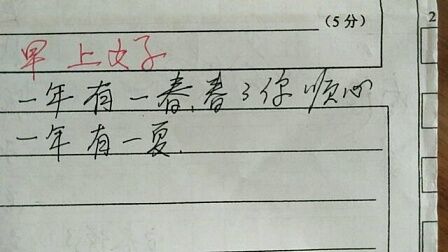 （5分）
2
早上好
一年有一春,春了你顺心
一年有一夏.